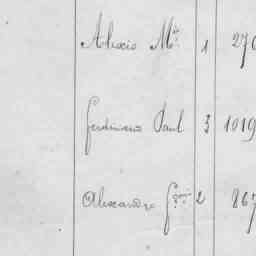 Alexis Mⁱⁿ 1 270
Ferdinand Paul 3 1019
Alexandre Fᵒⁱˢ 2 867